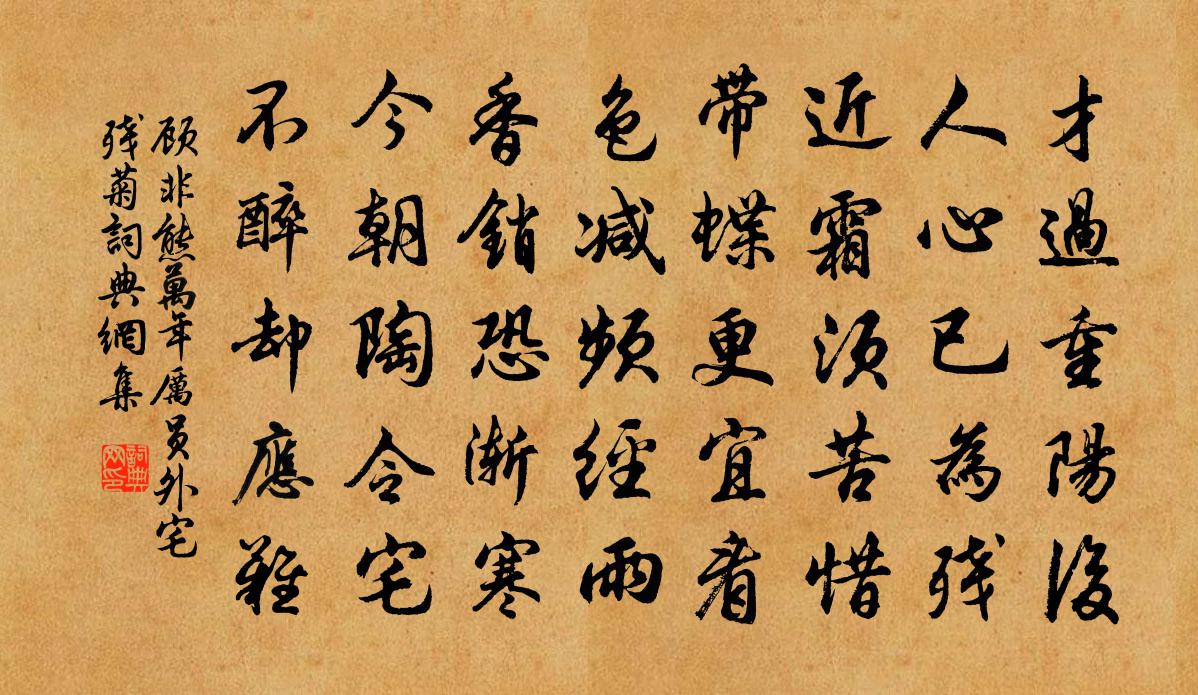 才過重陽後
人心已為残
近霜須苦惜
带蝶更宜看
色减頻經雨
香銷恐漸寒
今朝陶令宅
不醉却應難
顾非熊萬年厲員外宅
残菊詞典網集
詞典網印